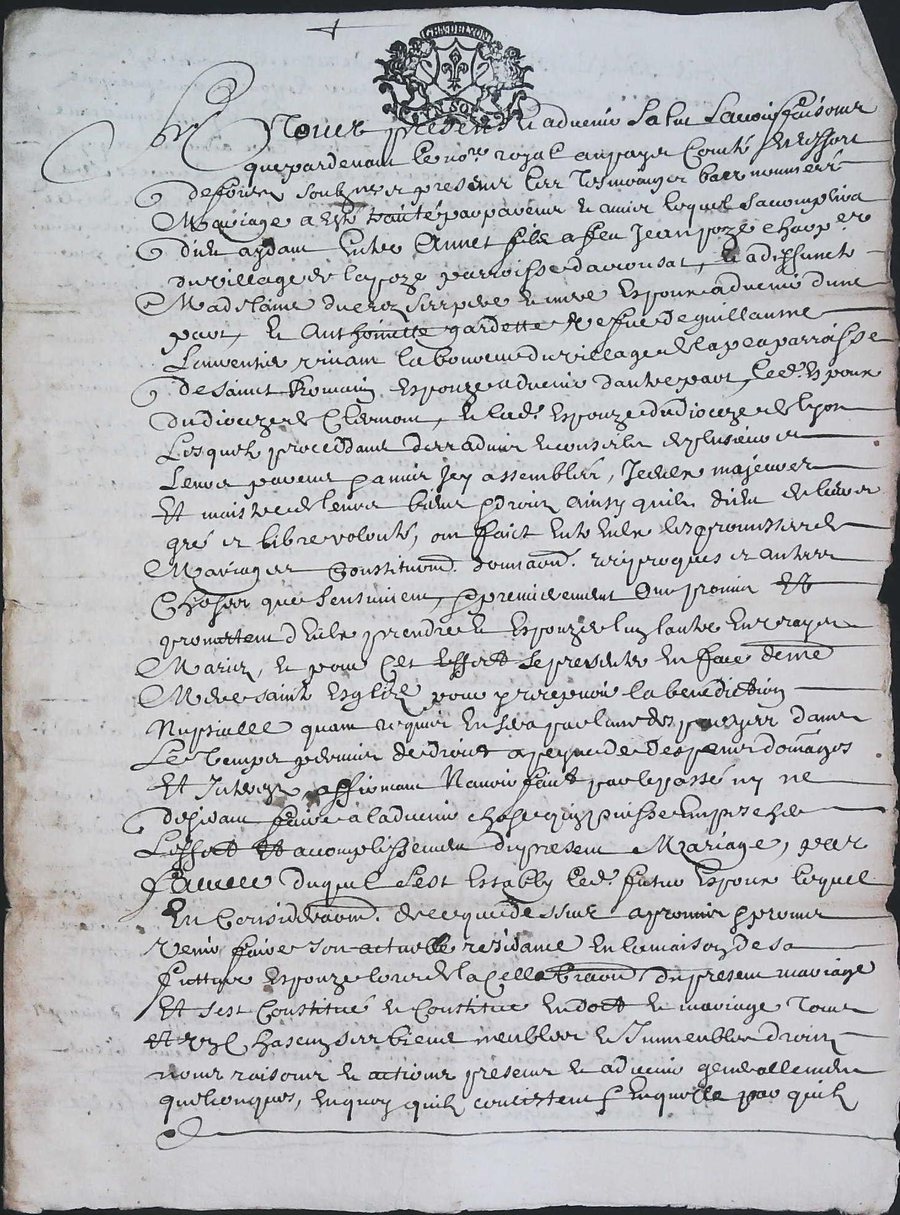 GEN DE LYON
UN SOL
A Tous presens et advenir Salut Scavoir faisons
que pardevant le no.re royal au pays Comté et ressort
de forest soubzne et presens les tesmoings bas nommés
Mariage a esté traité par parens et amis lequel s'acomplira
Dieu aydant Entre Annet fils a feu Jean
du village de parroisse d'arconsat, et a deffuncte
Madelaine ses pere et mere Espoux advenir d'une
part, et Anthoinette gardette vefve de guillaume
vivant laboureur du village de parroisse
de Saint Romain Espouze advenir d'autre part, led. Espoux
du dioceze de Clermont, et lad. Espouze du dioceze de lyon
Lesquels proceddant de l'advis et conseil de plusieurs
Leurs parens et amis icy assemblés, Iceux majeurs
Et maistres de leurs biens et droits ainsy qu'ils ont dit de leurs
gré et libre volonté, ont faict entre eux les promesses de
Mariage Constitutions donnaons. reciproques et autres
Choses que s'ensuivent, premierement ont promis et
promettent d'eux prendre et Espouzer l'un l'autre en vrays
Mariez, et pour cet effect se presenter en face de n.re
Mere sainte Esglize pour y recepvoir la benediction
Nuptialle quant requis en sera par l'une des parties dans
Le Temps permis de droict a peyne de despens domages
Et Interez affirmant N'avoir faict par le passé ny ne
desirant faire a l'advenir chose qui puisse empescher
L'effect et acomplissement du present Mariage, par
faveur duquel s'est Estably led. futur Espoux lequel
En Consideraon. de ce que dessus a promis et promet
venir faire son actuelle residance en la maison de sa
futture Espouze lors de la Cellebraon. du present mariage
Et s'est Constitué et Constitue en dot et mariage Tous
et un chascun ses biens meubles et Immeubles droits
noms raisons et actions presens et advenir generallement
quelconques, en quoy qu'ils consistent et en quelle part qu'ils